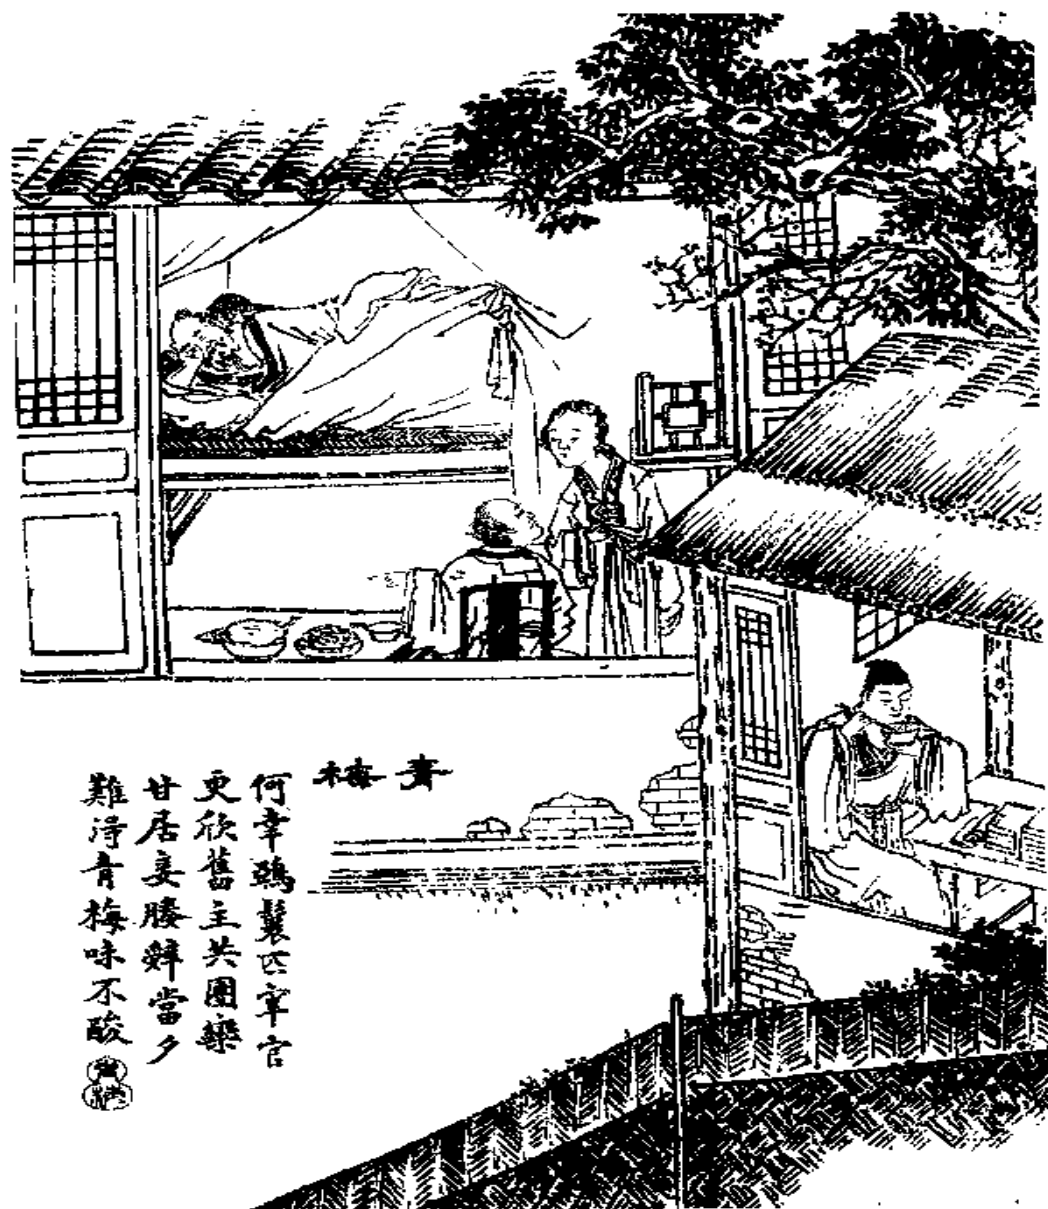 青梅
何幸鴉鬟匹宰官
更欣舊主共團欒
甘居妾媵辭當夕
難得青梅味不酸